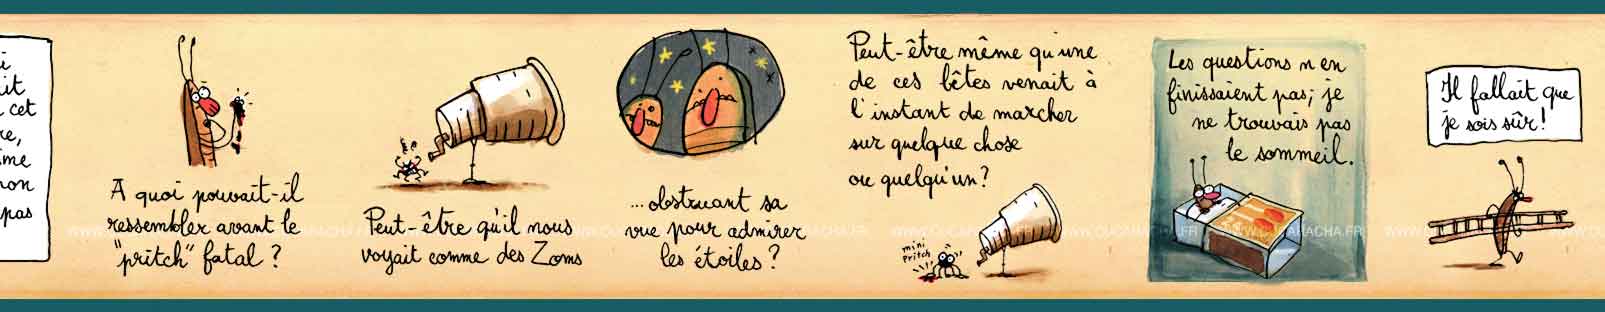 i
it
cet
re,
ime
non
pas
A quoi pouvait-il
ressembler avant le
"pritch" fatal ?
Peut-être qu'il nous
voyait comme des Zoms
...obstruant sa
vue pour admirer
les étoiles ?
Peut-être même qu'une
de ces bêtes venait à
l'instant de marcher
sur quelque chose
ou quelqu'un ?
mini
Pritch
Les questions n'en
finissaient pas ; je
ne trouvais pas
le sommeil.
Il fallait que
je sois sûr !
WWW.CUCARACHA.FR